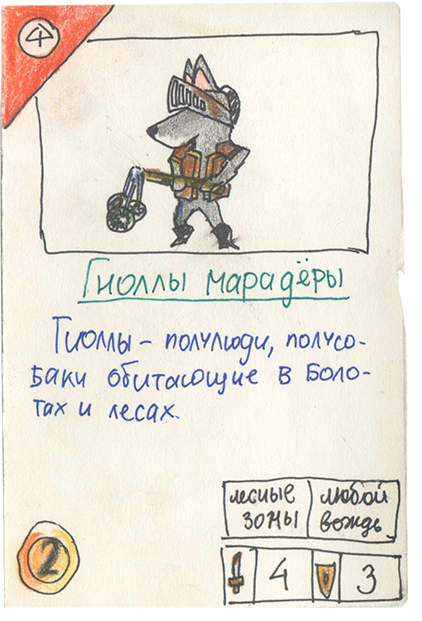 4
Гноллы марадёры
Гноллы – полулюди, полусо-
баки обитающие в Боло-
тах и лесах.
лесные любой
зоны вождь
2 4 3